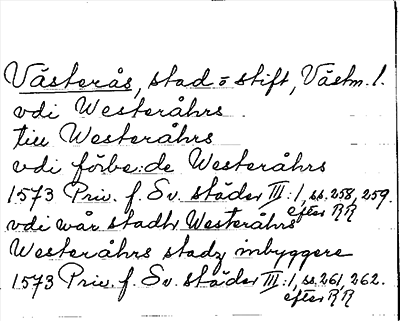 Västerås, stad o stift, Västm. l.
vdi Westeråhrs
till Westeråhrs
vdi förbe:de Westeråhrs
1573 Priv. f. Sv. städer III:1, ss. 258, 259.
efter RR
vdi wår stadh Westeråhrs
Westeråhrs stadz inbyggere
1573 Priv. f. Sv. städer III:1, ss. 261, 262.
efter RR